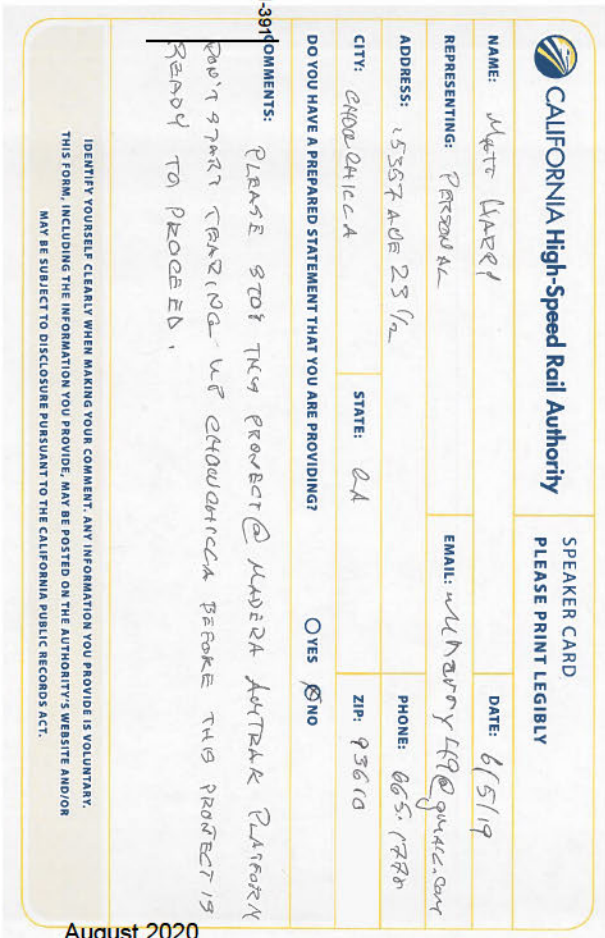 -391
CALIFORNIA High-Speed Rail Authority
SPEAKER CARD
PLEASE PRINT LEGIBLY
NAME: MATT HARRY
DATE: 6/5/19
REPRESENTING: PERSONAL
EMAIL:
ADDRESS: 15357 AVE 23 1/2
PHONE: 665.
CITY: CHOWCHILLA
STATE: CA
ZIP: 93610
DO YOU HAVE A PREPARED STATEMENT THAT YOU ARE PROVIDING?
YES NO
COMMENTS: PLEASE STOP THIS PROJECT @ MADERA AMTRAK PLATFORM
DON'T START TEARING UP CHOWCHILLA BEFORE THIS PROJECT IS
READY TO PROCEED.
IDENTIFY YOURSELF CLEARLY WHEN MAKING YOUR COMMENT. ANY INFORMATION YOU PROVIDE IS VOLUNTARY.
THIS FORM, INCLUDING THE INFORMATION YOU PROVIDE, MAY BE POSTED ON THE AUTHORITY'S WEBSITE AND/OR
MAY BE SUBJECT TO DISCLOSURE PURSUANT TO THE CALIFORNIA PUBLIC RECORDS ACT.
August 2020